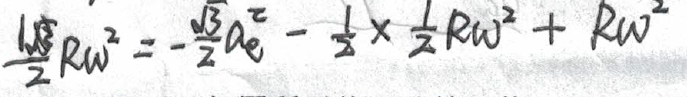 \frac{1\sqrt{3}}{2}Rω² = -\frac{\sqrt{3}}{2}a_e^τ - \frac{1}{2} × \frac{1}{2}Rω² + Rω²